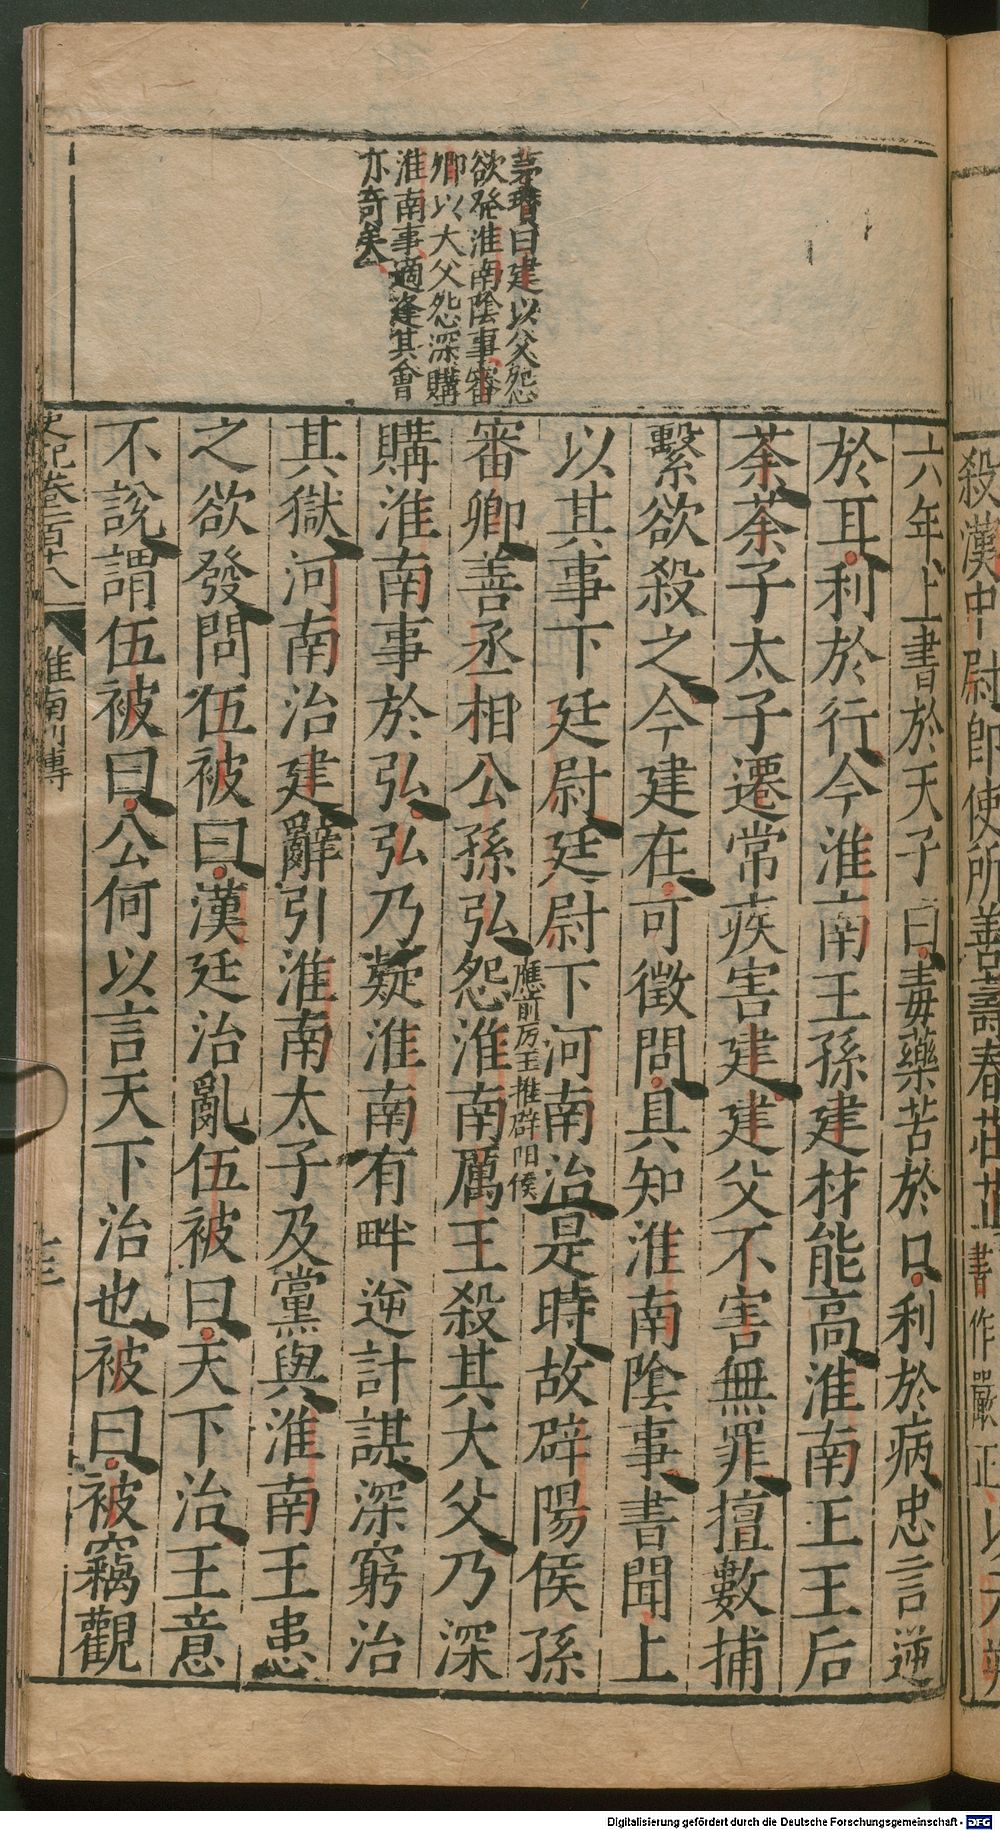 殺漢中尉即使所善壽春莊芷書作嚴正以元朔
茅瓚曰建以父怨
欲發淮南陰事審
卿以大父怨深購
淮南事適逢其會
亦奇矣
六年上書於天子曰毒藥苦於口利於病忠言逆
於耳利於行今淮南王孫建材能高淮南王王后
荼荼子太子遷常疾害建建父不害無罪擅數捕
繫欲殺之今建在可徵問具知淮南陰事書聞上
以其事下廷尉廷尉下河南治是時故辟陽侯孫
審卿善丞相公孫弘怨淮南厲王殺其大父乃深
應前厉王推辟阳侯
購淮南事於弘弘乃疑淮南有畔逆計謀深窮治
其獄河南治建辭引淮南太子及黨與淮南王患
之欲發問伍被曰漢廷治亂伍被曰天下治王意
不說謂伍被曰公何以言天下治也被曰被竊觀
史記卷一百十八 淮南列傳
Digitalisierung gefördert durch die Deutsche Forschungsgemeinschaft - DFG